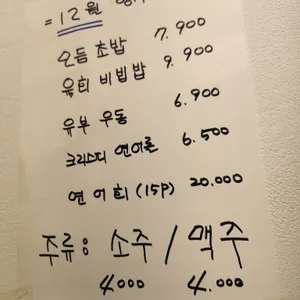 = 12월
모듬초밥 7.900
육회 비빔밥 9.900
유부 우동 6.900
크리스피 연어롤 6.500
연어회 (15P) 20.000
주류: 소주 / 맥주
4000 4.000